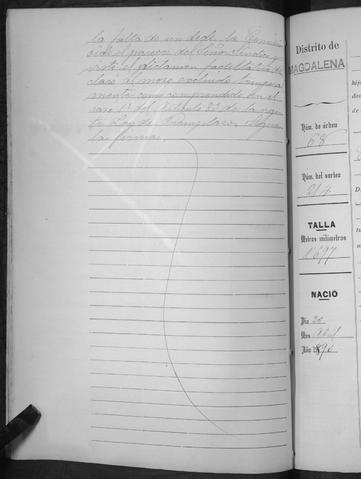 la falta de un dedo la Comisión
oído el parecer del Señor Síndico y
visto el dictamen facultativo de-
claró al mozo excluido tempora
mente como comprendido en el
caso 1º del artículo 83 de la vigen
te Ley de Reemplazos.
la forma.
Distrito de
MAGDALENA
Núm. de órden
68
Núm. del sorteo
214
TALLA
Metros milímetros
1'697
NACIÓ
Día 20
Mes Abril
Año 189